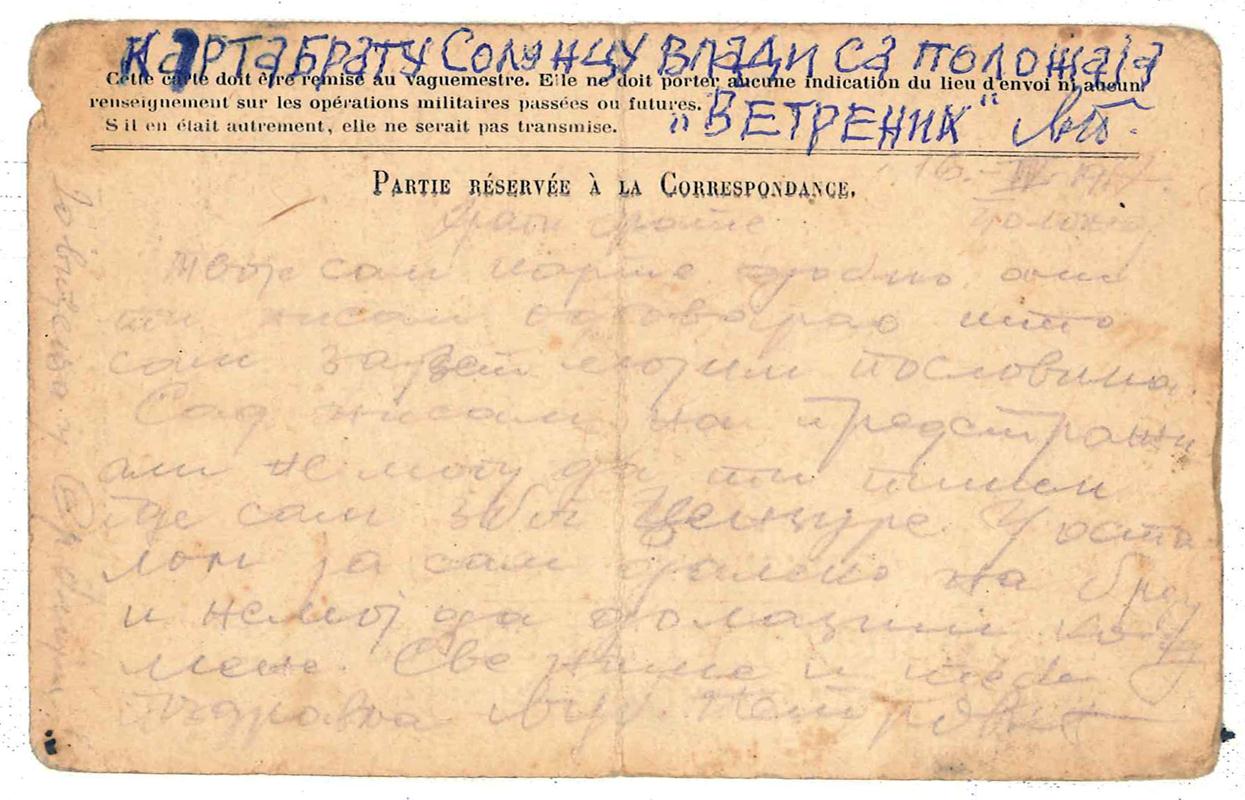 КАРТА БРАТУ СОЛУНЦУ ВЛАДИ СА ПОЛОЖАЈА
Cette carte doit être remise au vaguemestre. Elle ne doit porter aucune indication du lieu d'envoi ni aucun
renseignement sur les opérations militaires passées ou futures.
„ВЕТРЕНИК“
S'il en était autrement, elle ne serait pas transmise.
PARTIE RÉSERVÉE À LA CORRESPONDANCE.
16.-IV-1917
Драги брате
Положај
сам карте добио али
ти нисам одговарао што
сам заузет мојим пословима.
Сад нисам на предстражи
али не могу да ти пишем
где сам због цензуре. У оста
лом ја сам далеко на
и немој да долазиш код
мене. Све њине и тебе
Поздравља Петровић